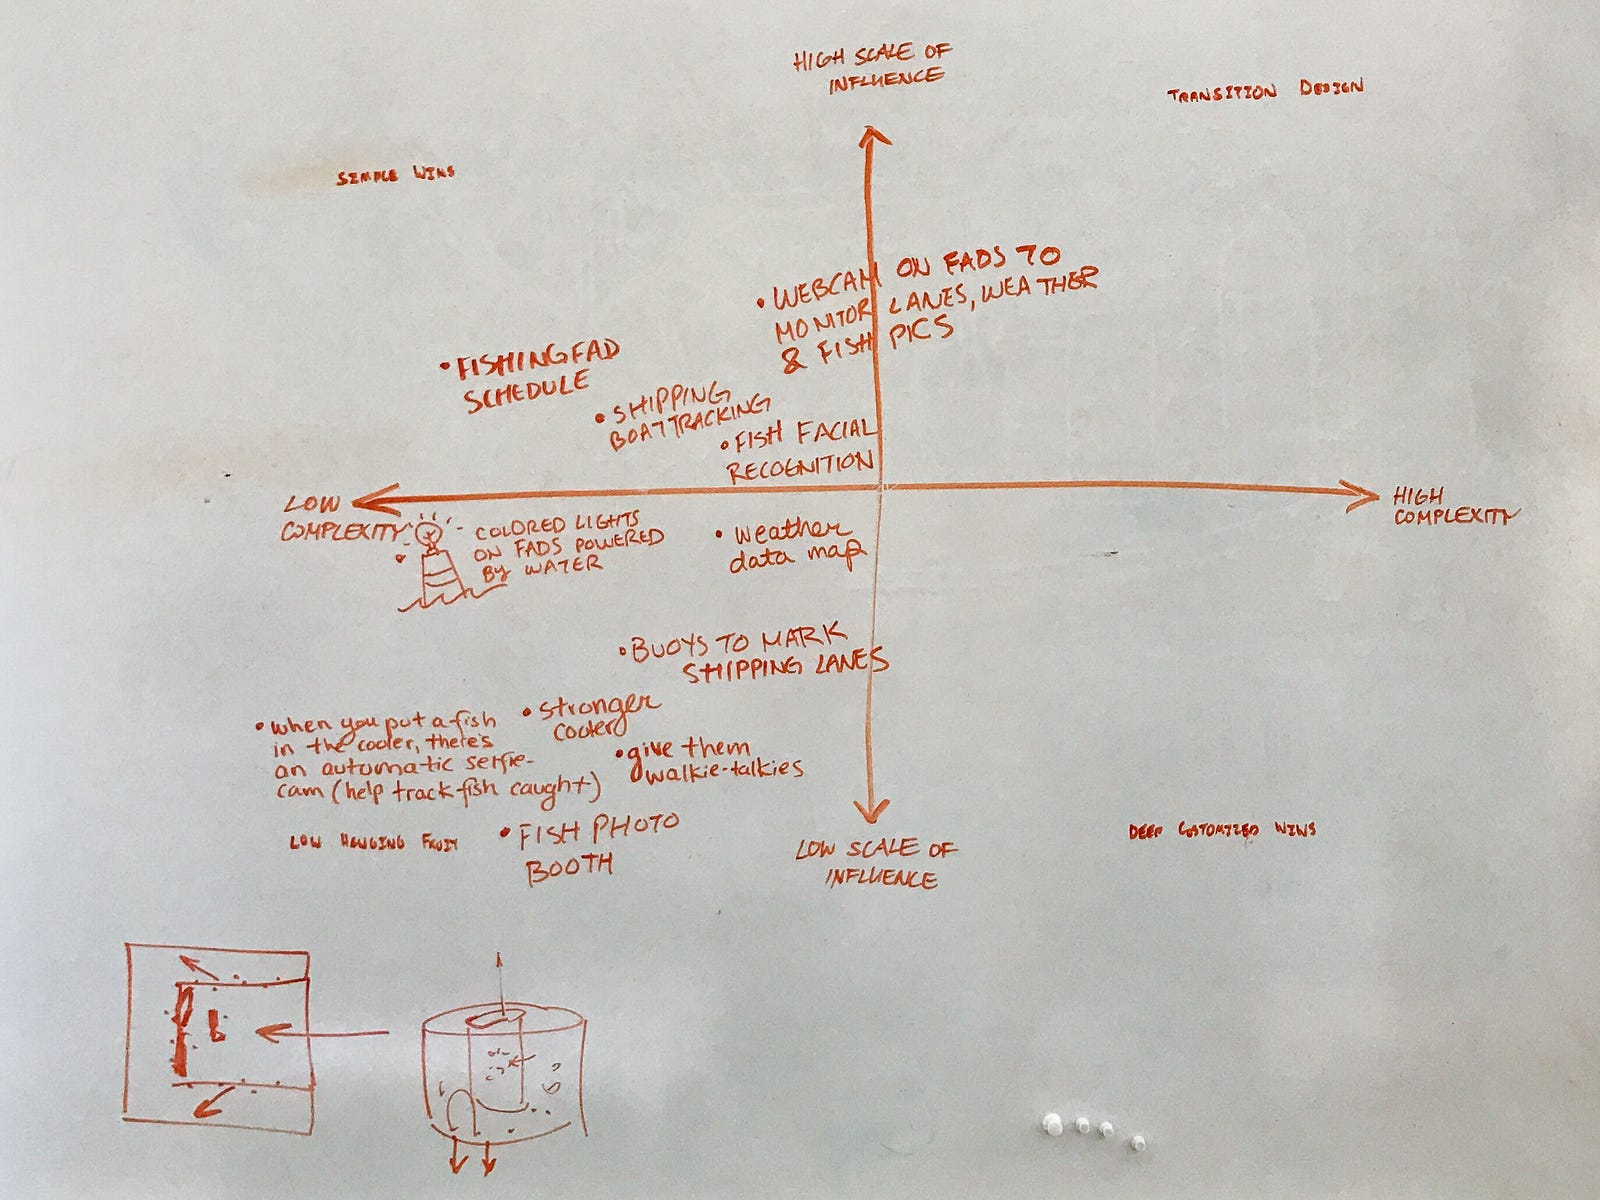 HIGH SCALE OF
INFLUENCE
TRANSITION DESIGN
SIMPLE WINS
• WEBCAM ON FADS TO
MONITOR LANES, WEATHER
& FISH PICS
• FISHING FAD
SCHEDULE
• SHIPPING
BOAT TRACKING
• FISH FACIAL
RECOGNITION
LOW
COMPLEXITY
HIGH
COMPLEXITY
- COLORED LIGHTS
ON FADS POWERED
BY WATER
• weather
data map
• BUOYS TO MARK
SHIPPING LANES
• when you put a fish
in the cooler, there's
an automatic selfie-
cam (help track fish caught)
• stronger
cooler
• give them
walkie-talkies
LOW HANGING FRUIT
• FISH PHOTO
BOOTH
LOW SCALE OF
INFLUENCE
DEEP CUSTOMIZED WINS